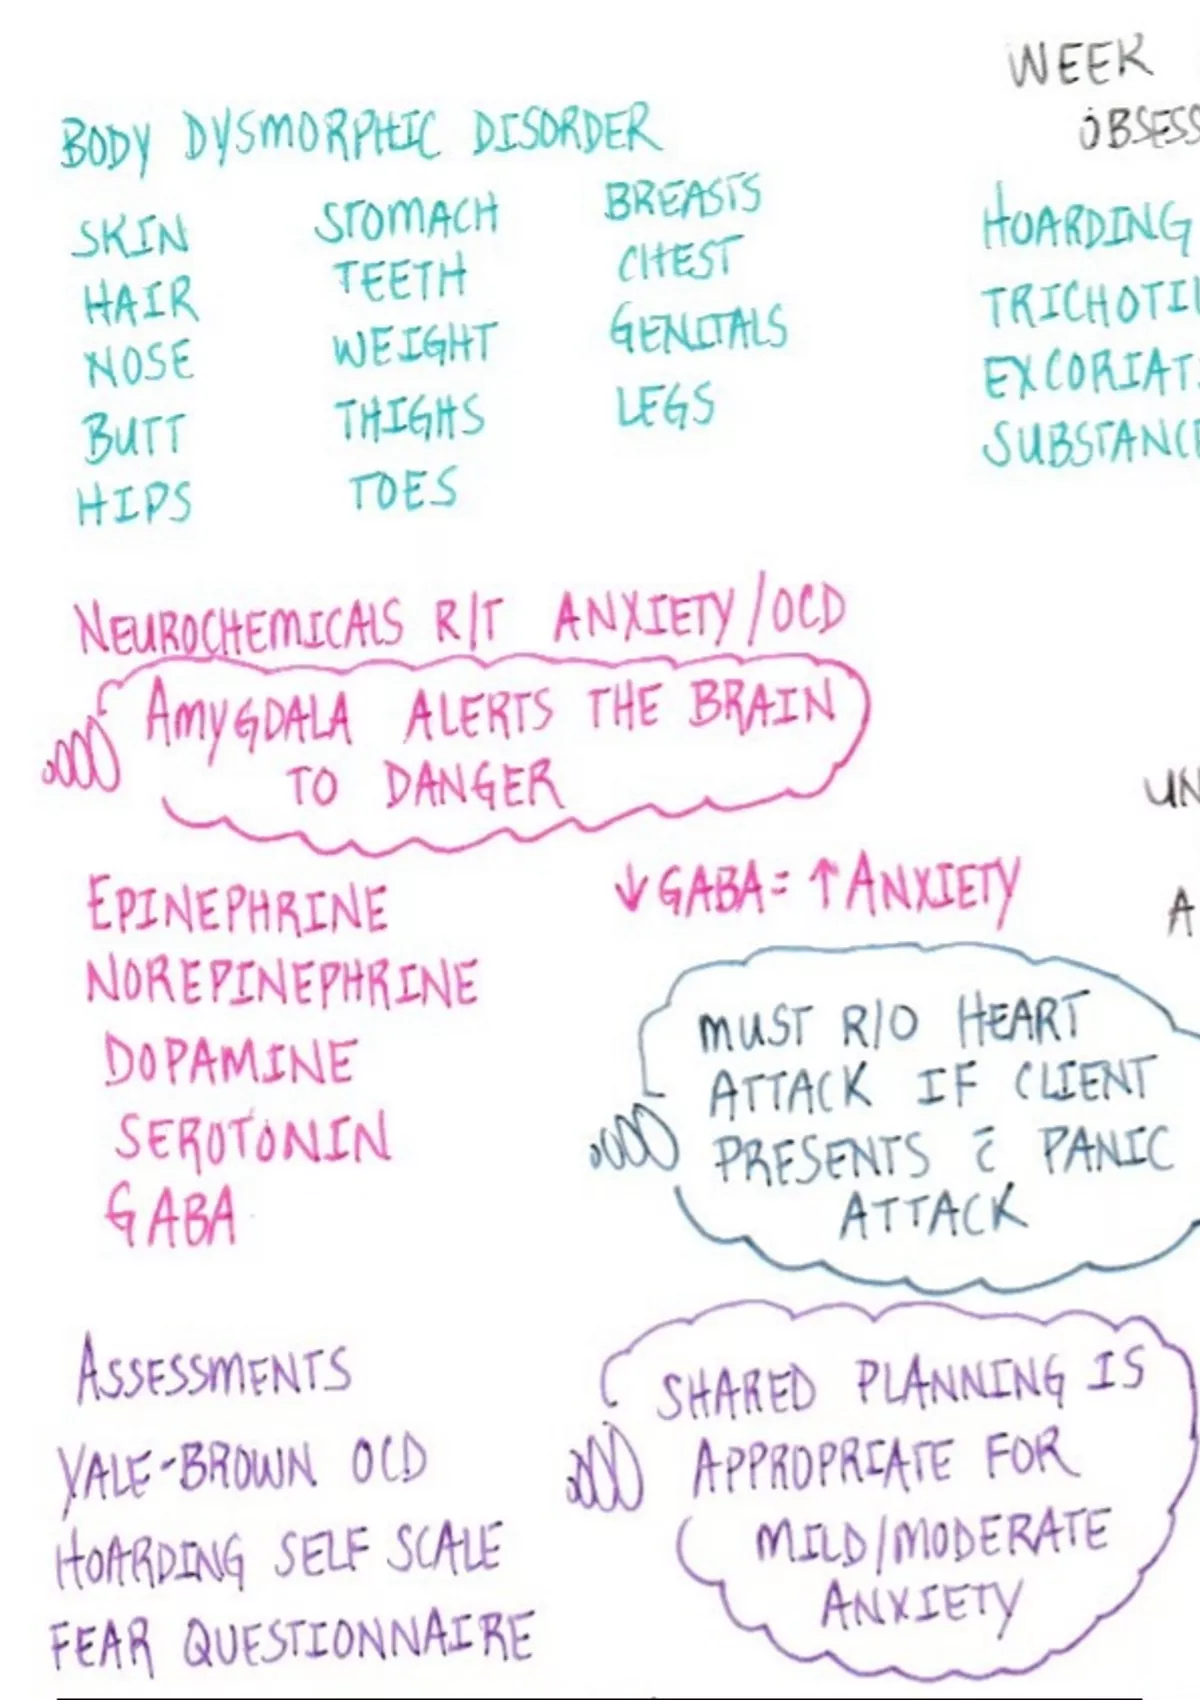 WEEK
OBSESS
BODY DYSMORPHIC DISORDER
SKIN STOMACH BREASTS
HAIR TEETH CHEST
NOSE WEIGHT GENITALS
BUTT THIGHS LEGS
HIPS TOES
HOARDING
TRICHOTIL
EXCORIATI
SUBSTANCE
NEUROCHEMICALS R/T ANXIETY/OCD
AMYGDALA ALERTS THE BRAIN
TO DANGER
UN
A
EPINEPHRINE
NOREPINEPHRINE
DOPAMINE
SEROTONIN
GABA
↓ GABA = ↑ ANXIETY
MUST R/O HEART
ATTACK IF CLIENT
PRESENTS c̄ PANIC
ATTACK
ASSESSMENTS
YALE-BROWN OCD
HOARDING SELF SCALE
FEAR QUESTIONNAIRE
SHARED PLANNING IS
APPROPRIATE FOR
MILD/MODERATE
ANXIETY